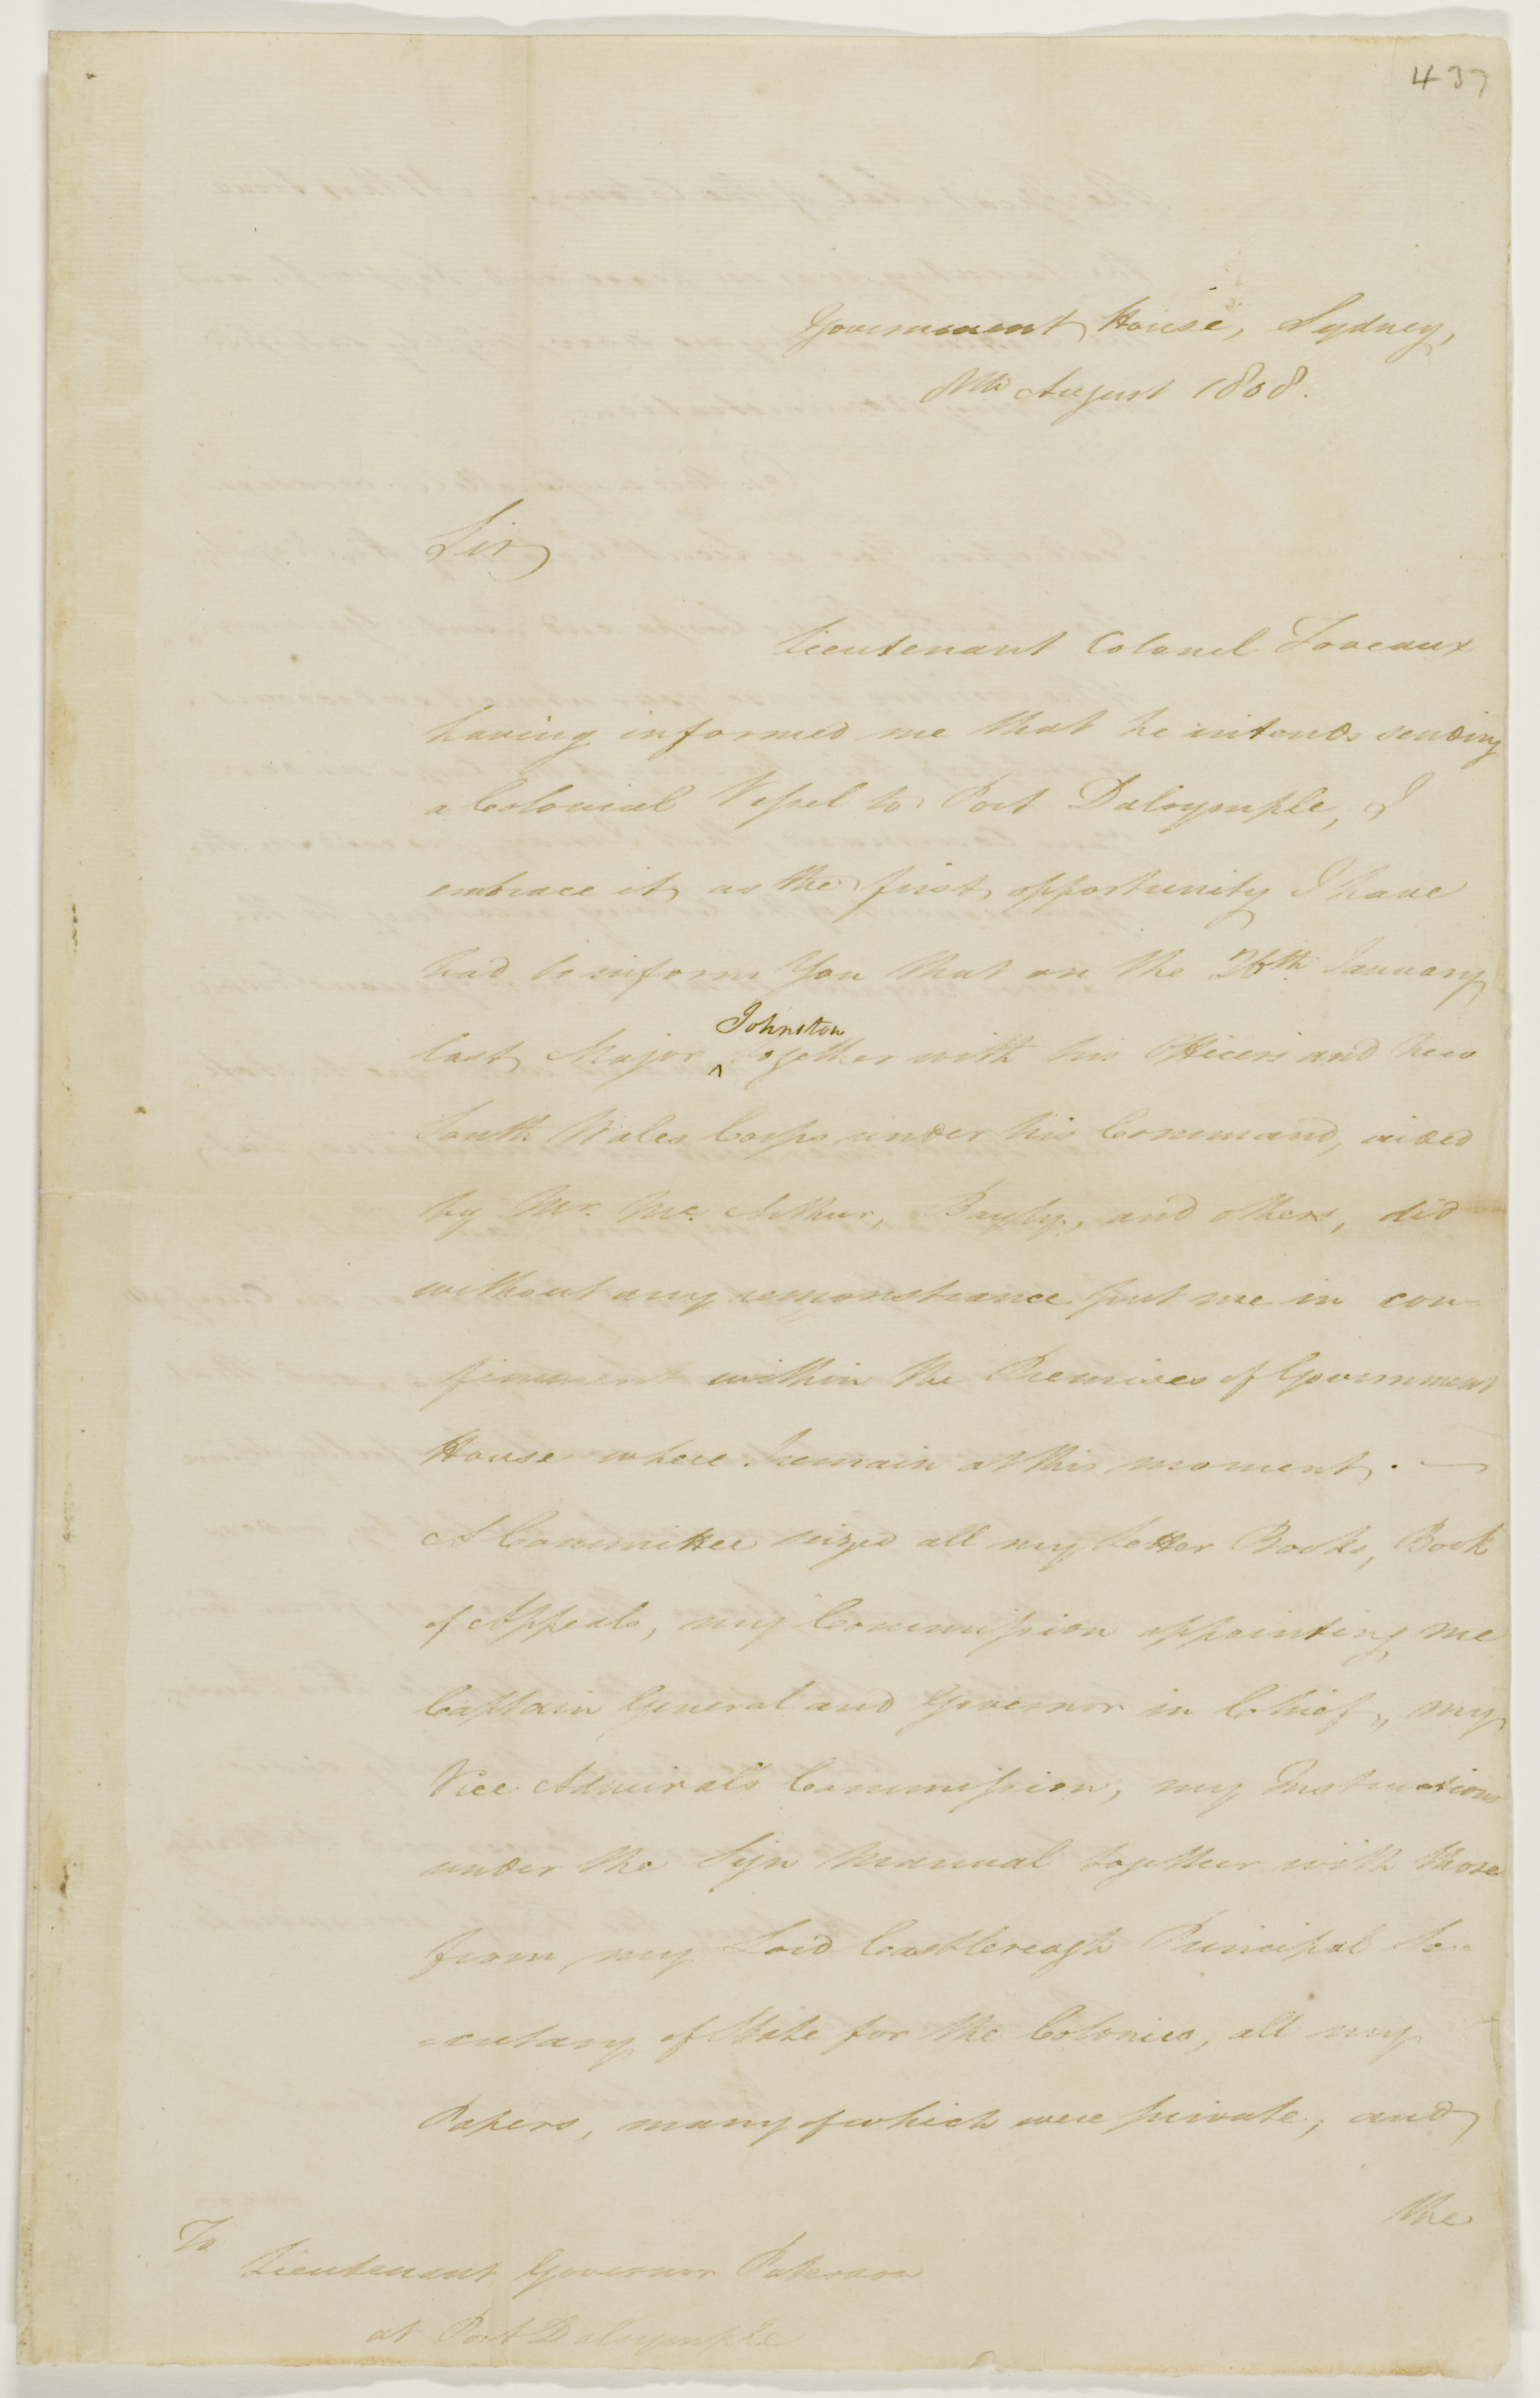 437
Government House, Sydney,
8th August 1808.
Sir
Lieutenant Colonel Foveaux
having informed me that he intends sending
a Colonial Vessel to Port Dalrymple, I
embrace it as the first opportunity I have
had to inform You that on the 26th January
last Major Johnston together with his Officers and New
South Wales Corps under his Command, aided
by Mr. Mc. Arthur, Bayly, and others, did
without any remonstrance put me in con-
finement within the Premises of Government
House where I remain at this moment. —
A Committee seized all my Letter Books, Book
of Appeals, my Commission appointing me
Captain General and Governor in Chief, my
Vice Admirals Commission, my Instructions
under the Sign Manual together with those
from my Lord Castlereagh Principal Se-
-cretary of State for the Colonies, all my
Papers, many of which were private; and
the
To
Lieutenant Governor Paterson
at Port Dalrymple